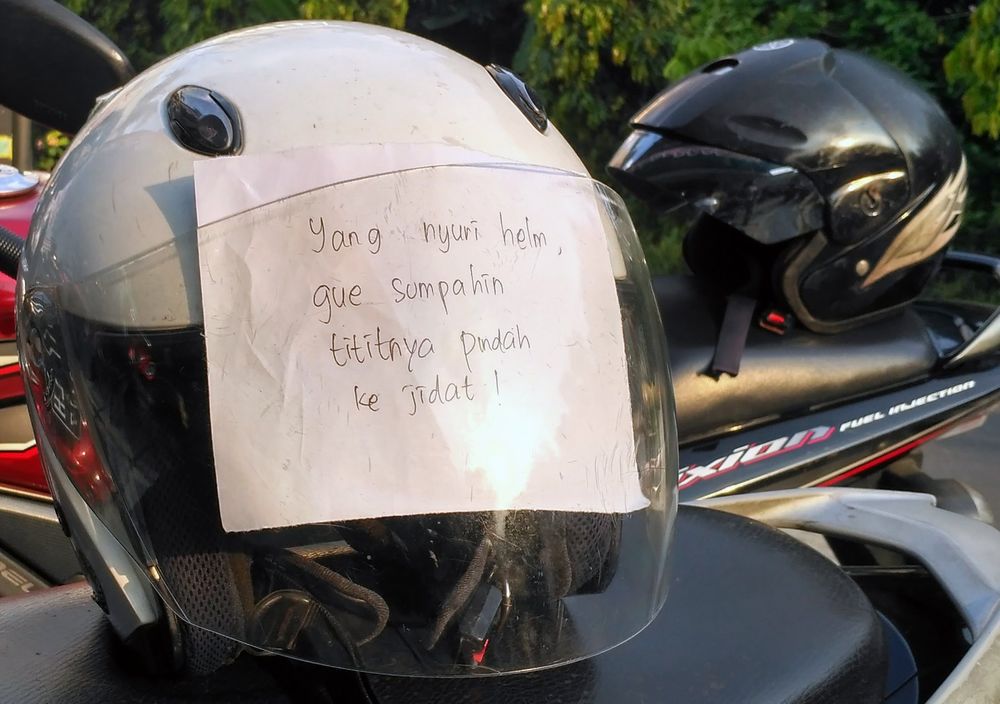 Yang nyuri helm,
gue sumpahin
tititnya pindah
ke jidat !
ixion FUEL INJECTION